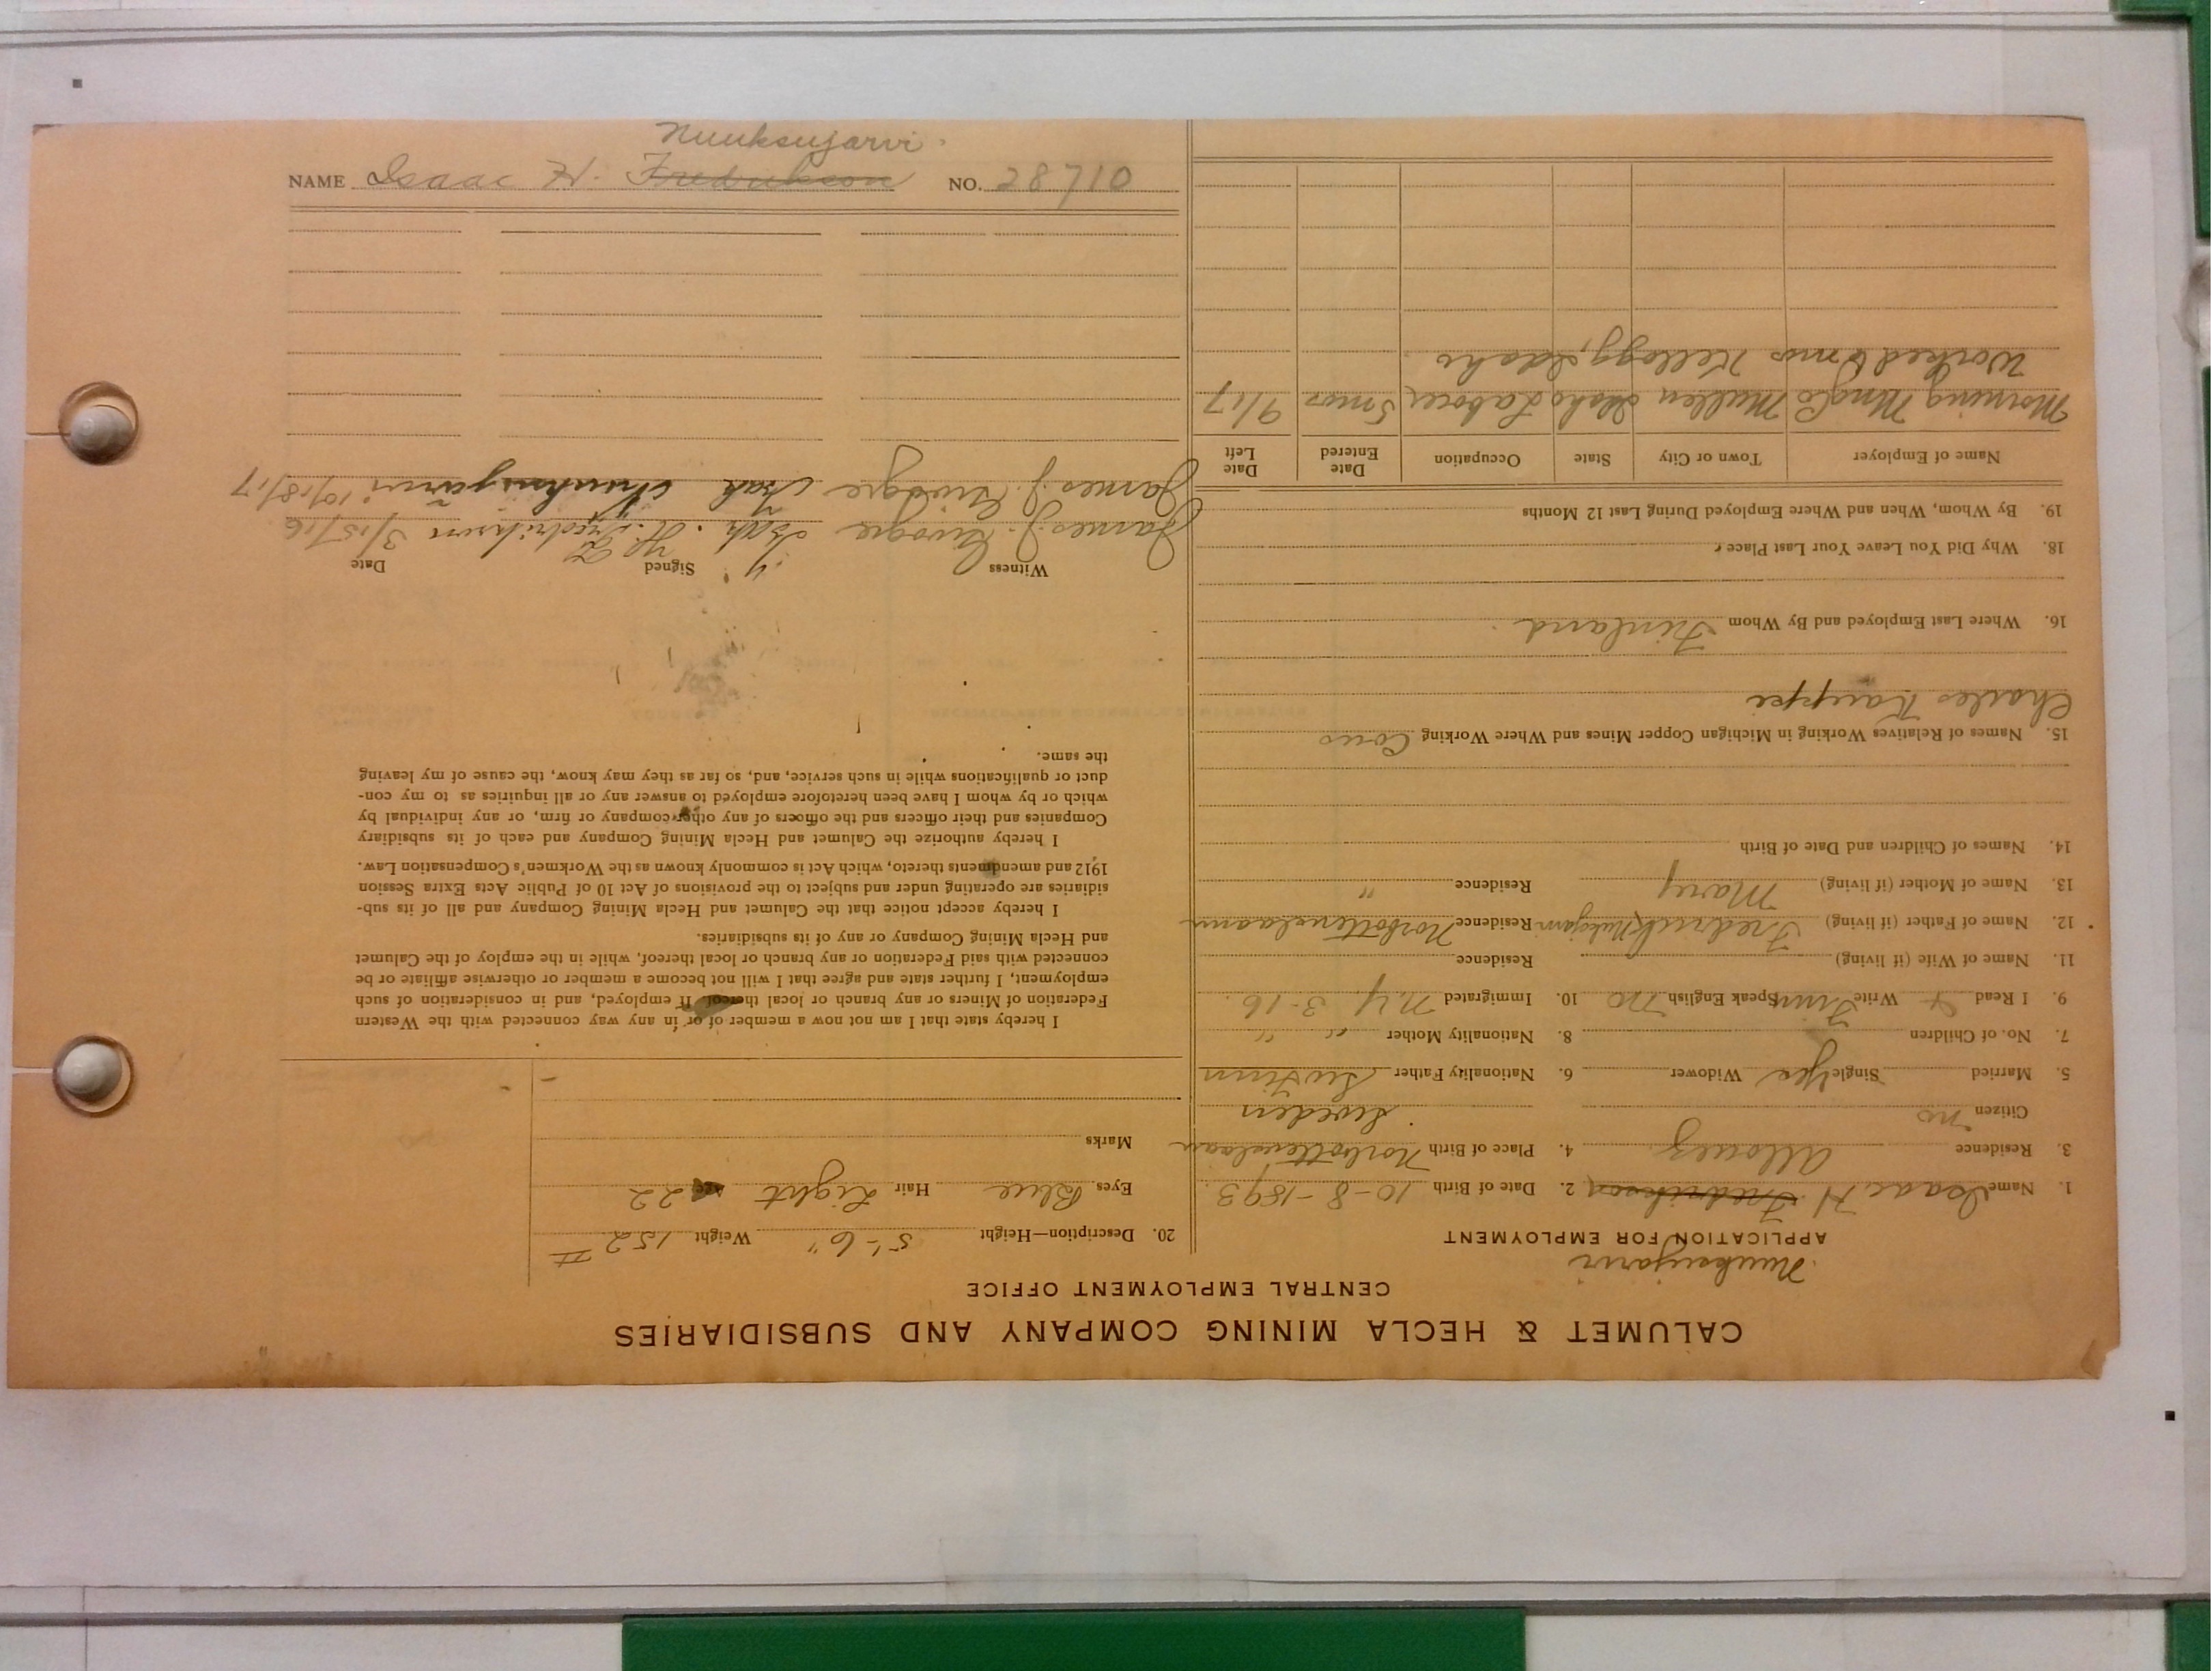 NAME Isaac H. Fredrikson Nuuksujarvi NO. 28710
CALUMET & HECLA MINING COMPANY AND SUBSIDIARIES
CENTRAL EMPLOYMENT OFFICE
Nuuksujarvi
APPLICATION FOR EMPLOYMENT
1. Name Isaac H Fredrikson 2. Date of Birth 10-8-1893
3. Residence Allouez 4. Place of Birth Norbottenslaan
Citizen no Sweden
5. Married Single Yes Widower 6. Nationality Father Swd Finn
7. No. of Children 8. Nationality Mother " "
9. I Read & Write Finn Speak English no 10. Immigrated N.Y. 3-16
11. Name of Wife (if living) Residence
12. Name of Father (if living) Fredrick Nuksujarvi Residence Norbottenslaan
13. Name of Mother (if living) Mary Residence "
14. Names of Children and Date of Birth
15. Names of Relatives Working in Michigan Copper Mines and Where Working Cous
Charles Kauppi
16. Where Last Employed and By Whom Finland
18. Why Did You Leave Your Last Place
19. By Whom, When and Where Employed During Last 12 Months
Name of Employer Town or City State Occupation Date Entered Date Left
Morning Mng Co Mullen Idaho Laborer 5 mos 9/17
Worked mos Kellogg, Idaho
20. Description—Height 5'-6" Weight 152 II
Eyes Blue Hair Light Age 22
Marks
I hereby state that I am not now a member of or in any way connected with the Western
Federation of Miners or any branch or local thereof. If employed, and in consideration of such
employment, I further state and agree that I will not become a member or otherwise affiliate or be
connected with said Federation or any branch or local thereof, while in the employ of the Calumet
and Hecla Mining Company or any of its subsidiaries.
I hereby accept notice that the Calumet and Hecla Mining Company and all of its sub-
sidiaries are operating under and subject to the provisions of Act 10 of Public Acts Extra Session
1912 and amendments thereto, which Act is commonly known as the Workmen's Compensation Law.
I hereby authorize the Calumet and Hecla Mining Company and each of its subsidiary
Companies and their officers and the officers of any other company or firm, or any individual by
which or by whom I have been heretofore employed to answer any or all inquiries as to my con-
duct or qualifications while in such service, and, so far as they may know, the cause of my leaving
the same.
Witness Signed Date
James J. Isak. H. Fredrikson 3/15/16
James J. Isak Nuuksujärvi 10/18/17